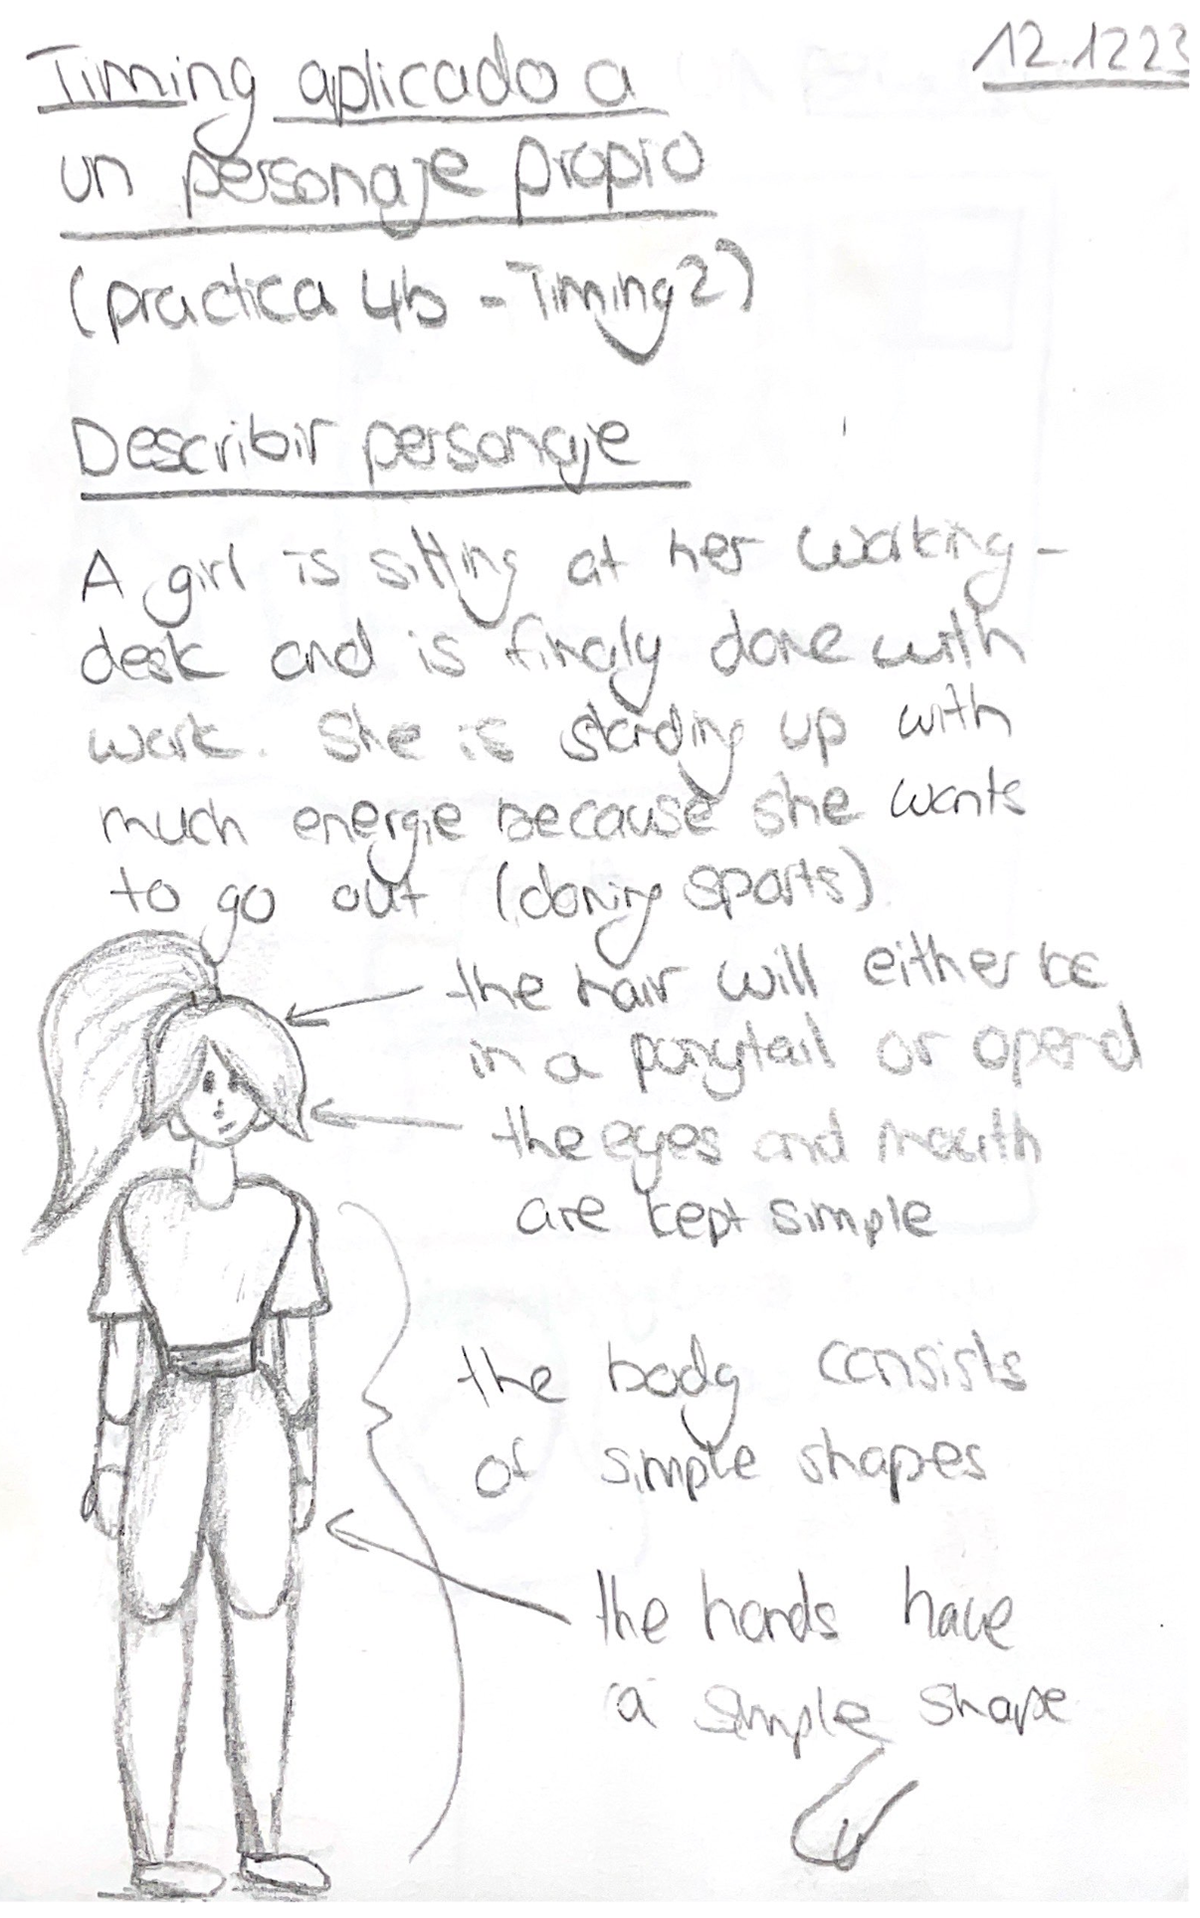 12.1223
Timing aplicado a
un personaje propio
(practica 4b - Timing2)
Describir personaje
A girl is sitting at her working-
desk and is finaly done with
work. She is standing up with
much energie because she wants
to go out (doning sports)
the hair will either be
in a ponytail or opend
the eyes and mouth
are kept simple
the body consists
of simple shapes
the hands have
a simple shape